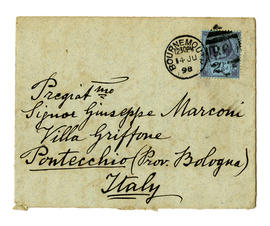 BOURNEMOUTH
12.30PM
14 JU
98
Pregiat mo
Signor Giuseppe Marconi
Villa Griffone
Pontecchio (Prov. Bologna)
Italy